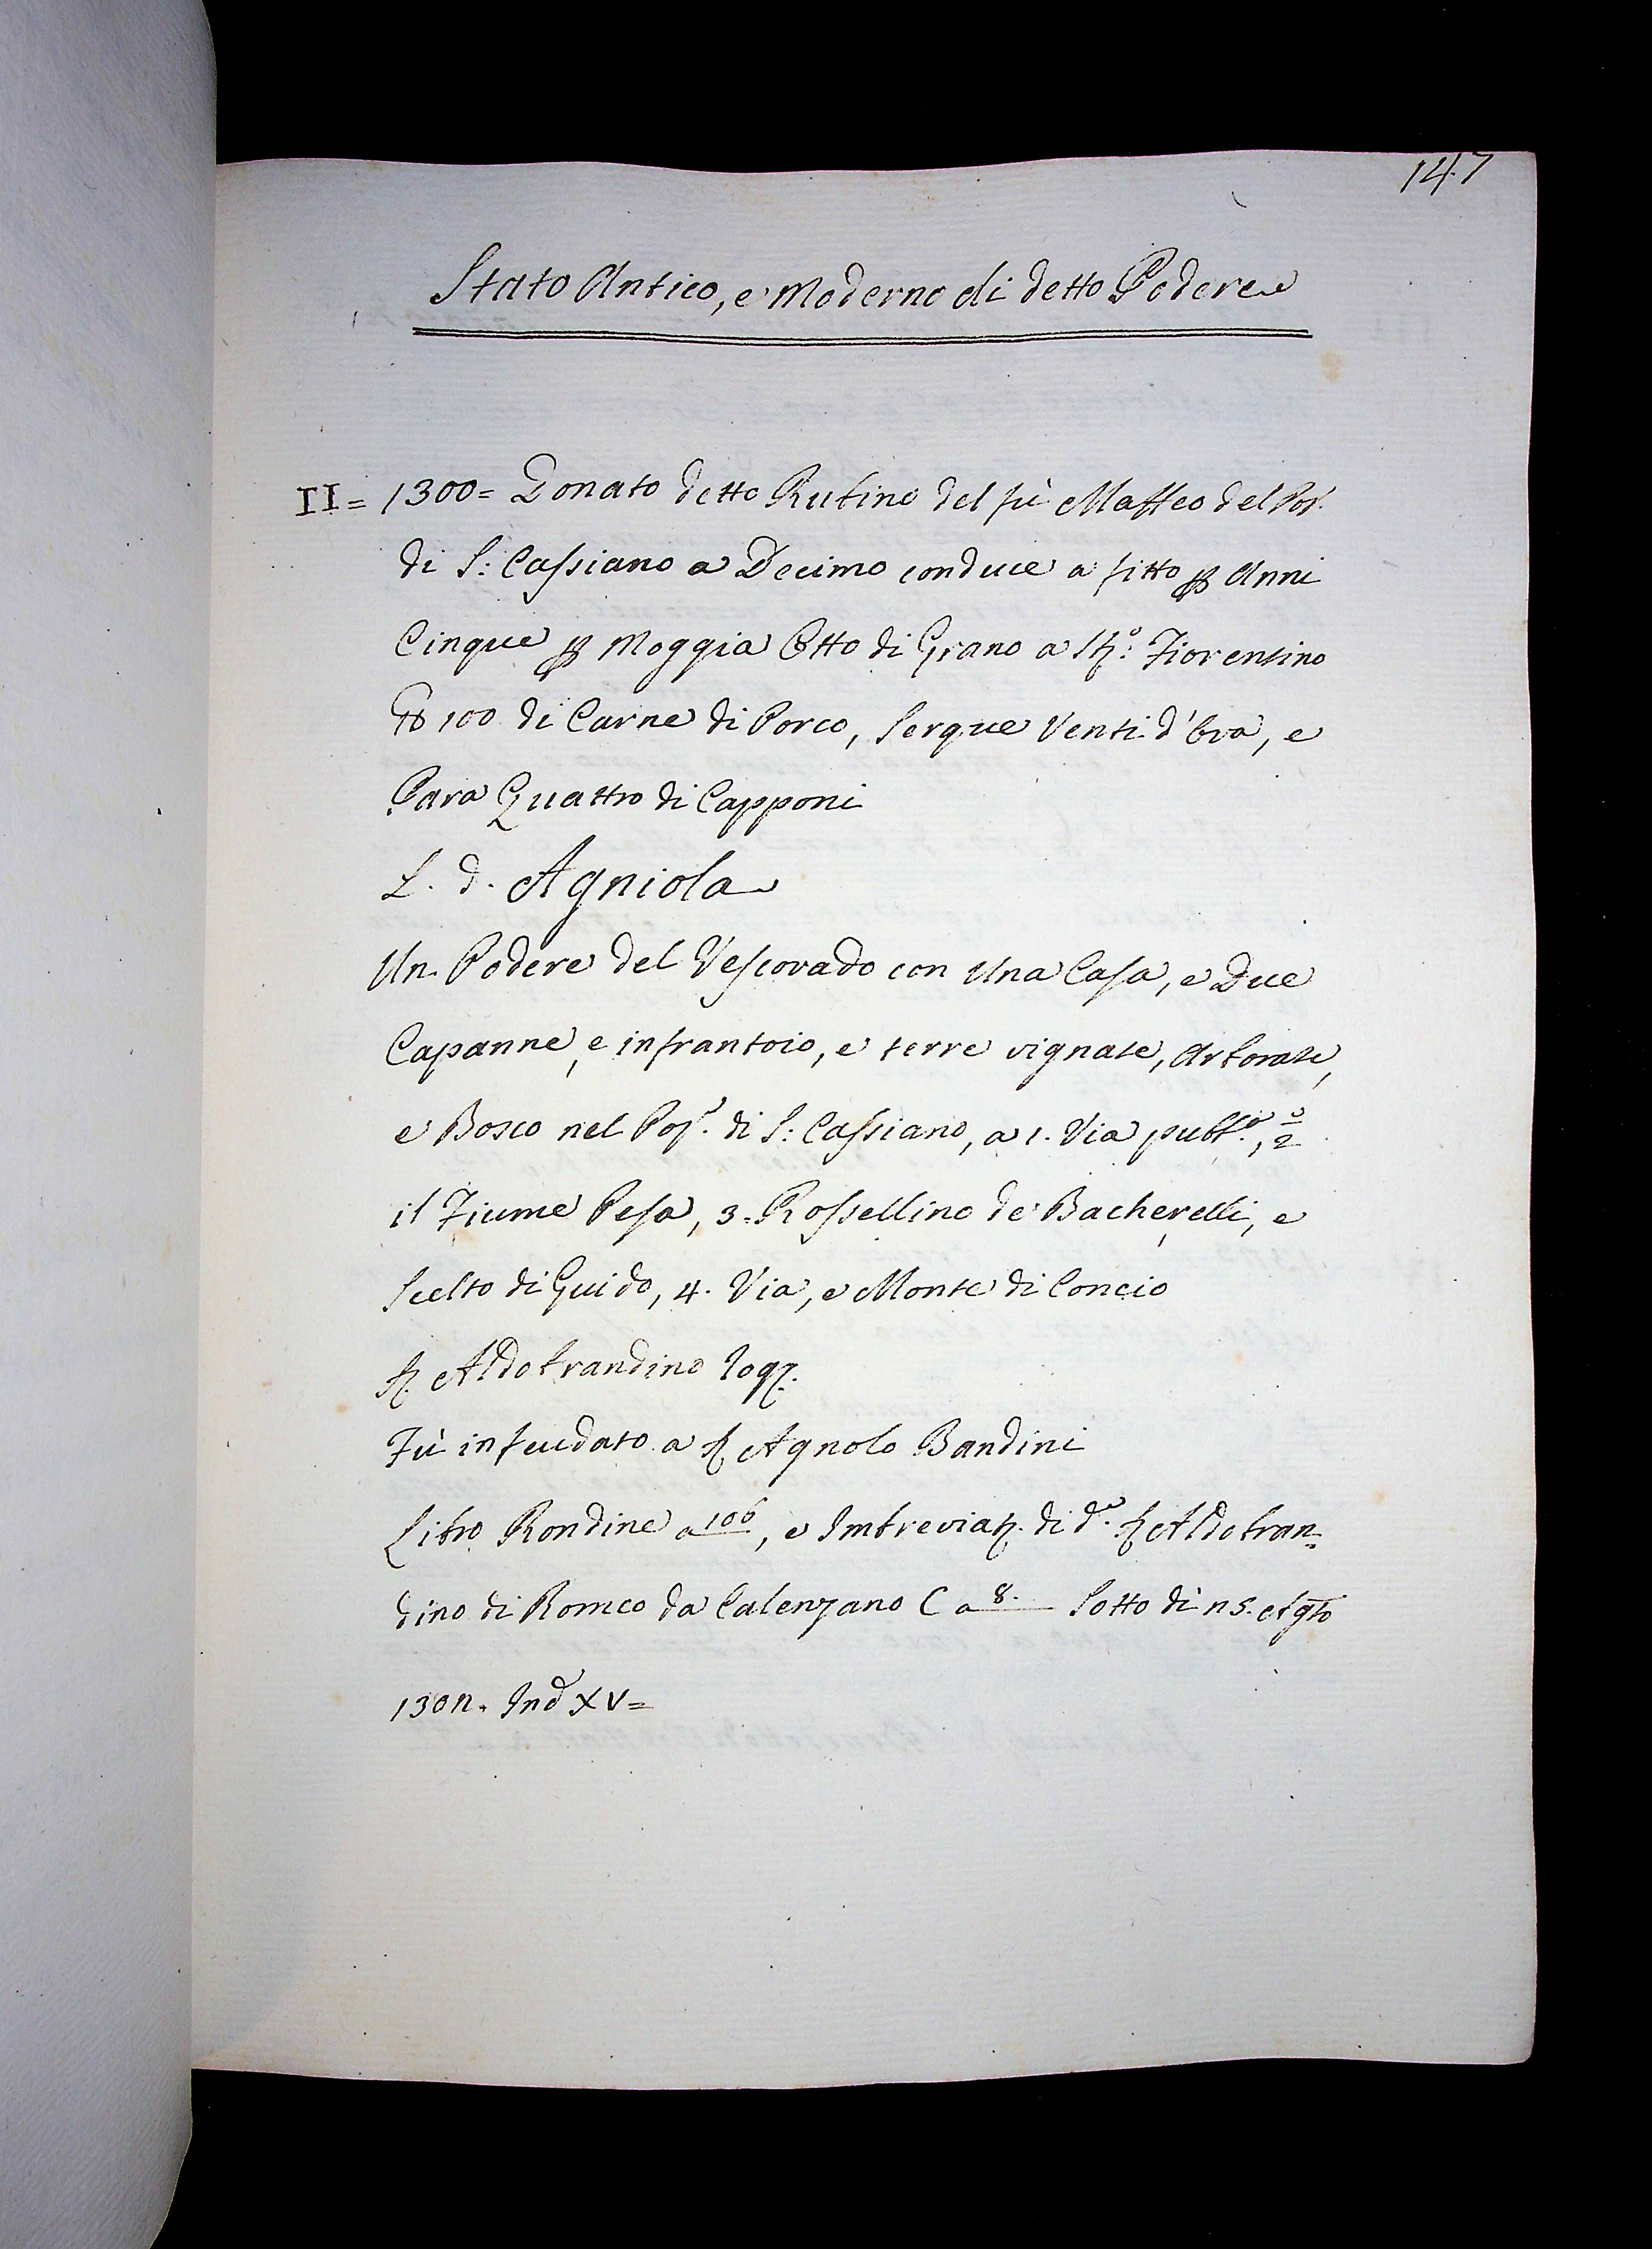 147
Stato Antico, e Moderno di detto Podere
II = 1300 = Donato detto Rubino del fù Maffeo del Pop.
di S: Cassiano a Decimo conduce a fitto p Anni
Cinque p Moggia Otto di Grano a St.º: Fiorentino
℔ 100 di Carne di Porco, Serque Venti d'Ova, e
Para Quattro di Capponi
L. d. Agniola
Un Podere del Vescovado con Una Casa, e Due
Capanne, e infrantoio, e terre vignate, Arborate,
e Bosco nel Pop.º di S: Cassiano, a 1. Via pubb.ª, 2º
il Fiume Pesa, 3. Rossellino de Bacherelli, e
Scelto di Guido, 4. Via, e Monte di Concio
S. Aldobrandino Rog.
Fù infeudato a S. Agnolo Bandini
Libro Rondine a 106, e Imbreviaz. di d.º S. Aldobran=
dino di Romeo da Calenzano C a 8. Sotto dì 25. Agto
1302. Ind XV=